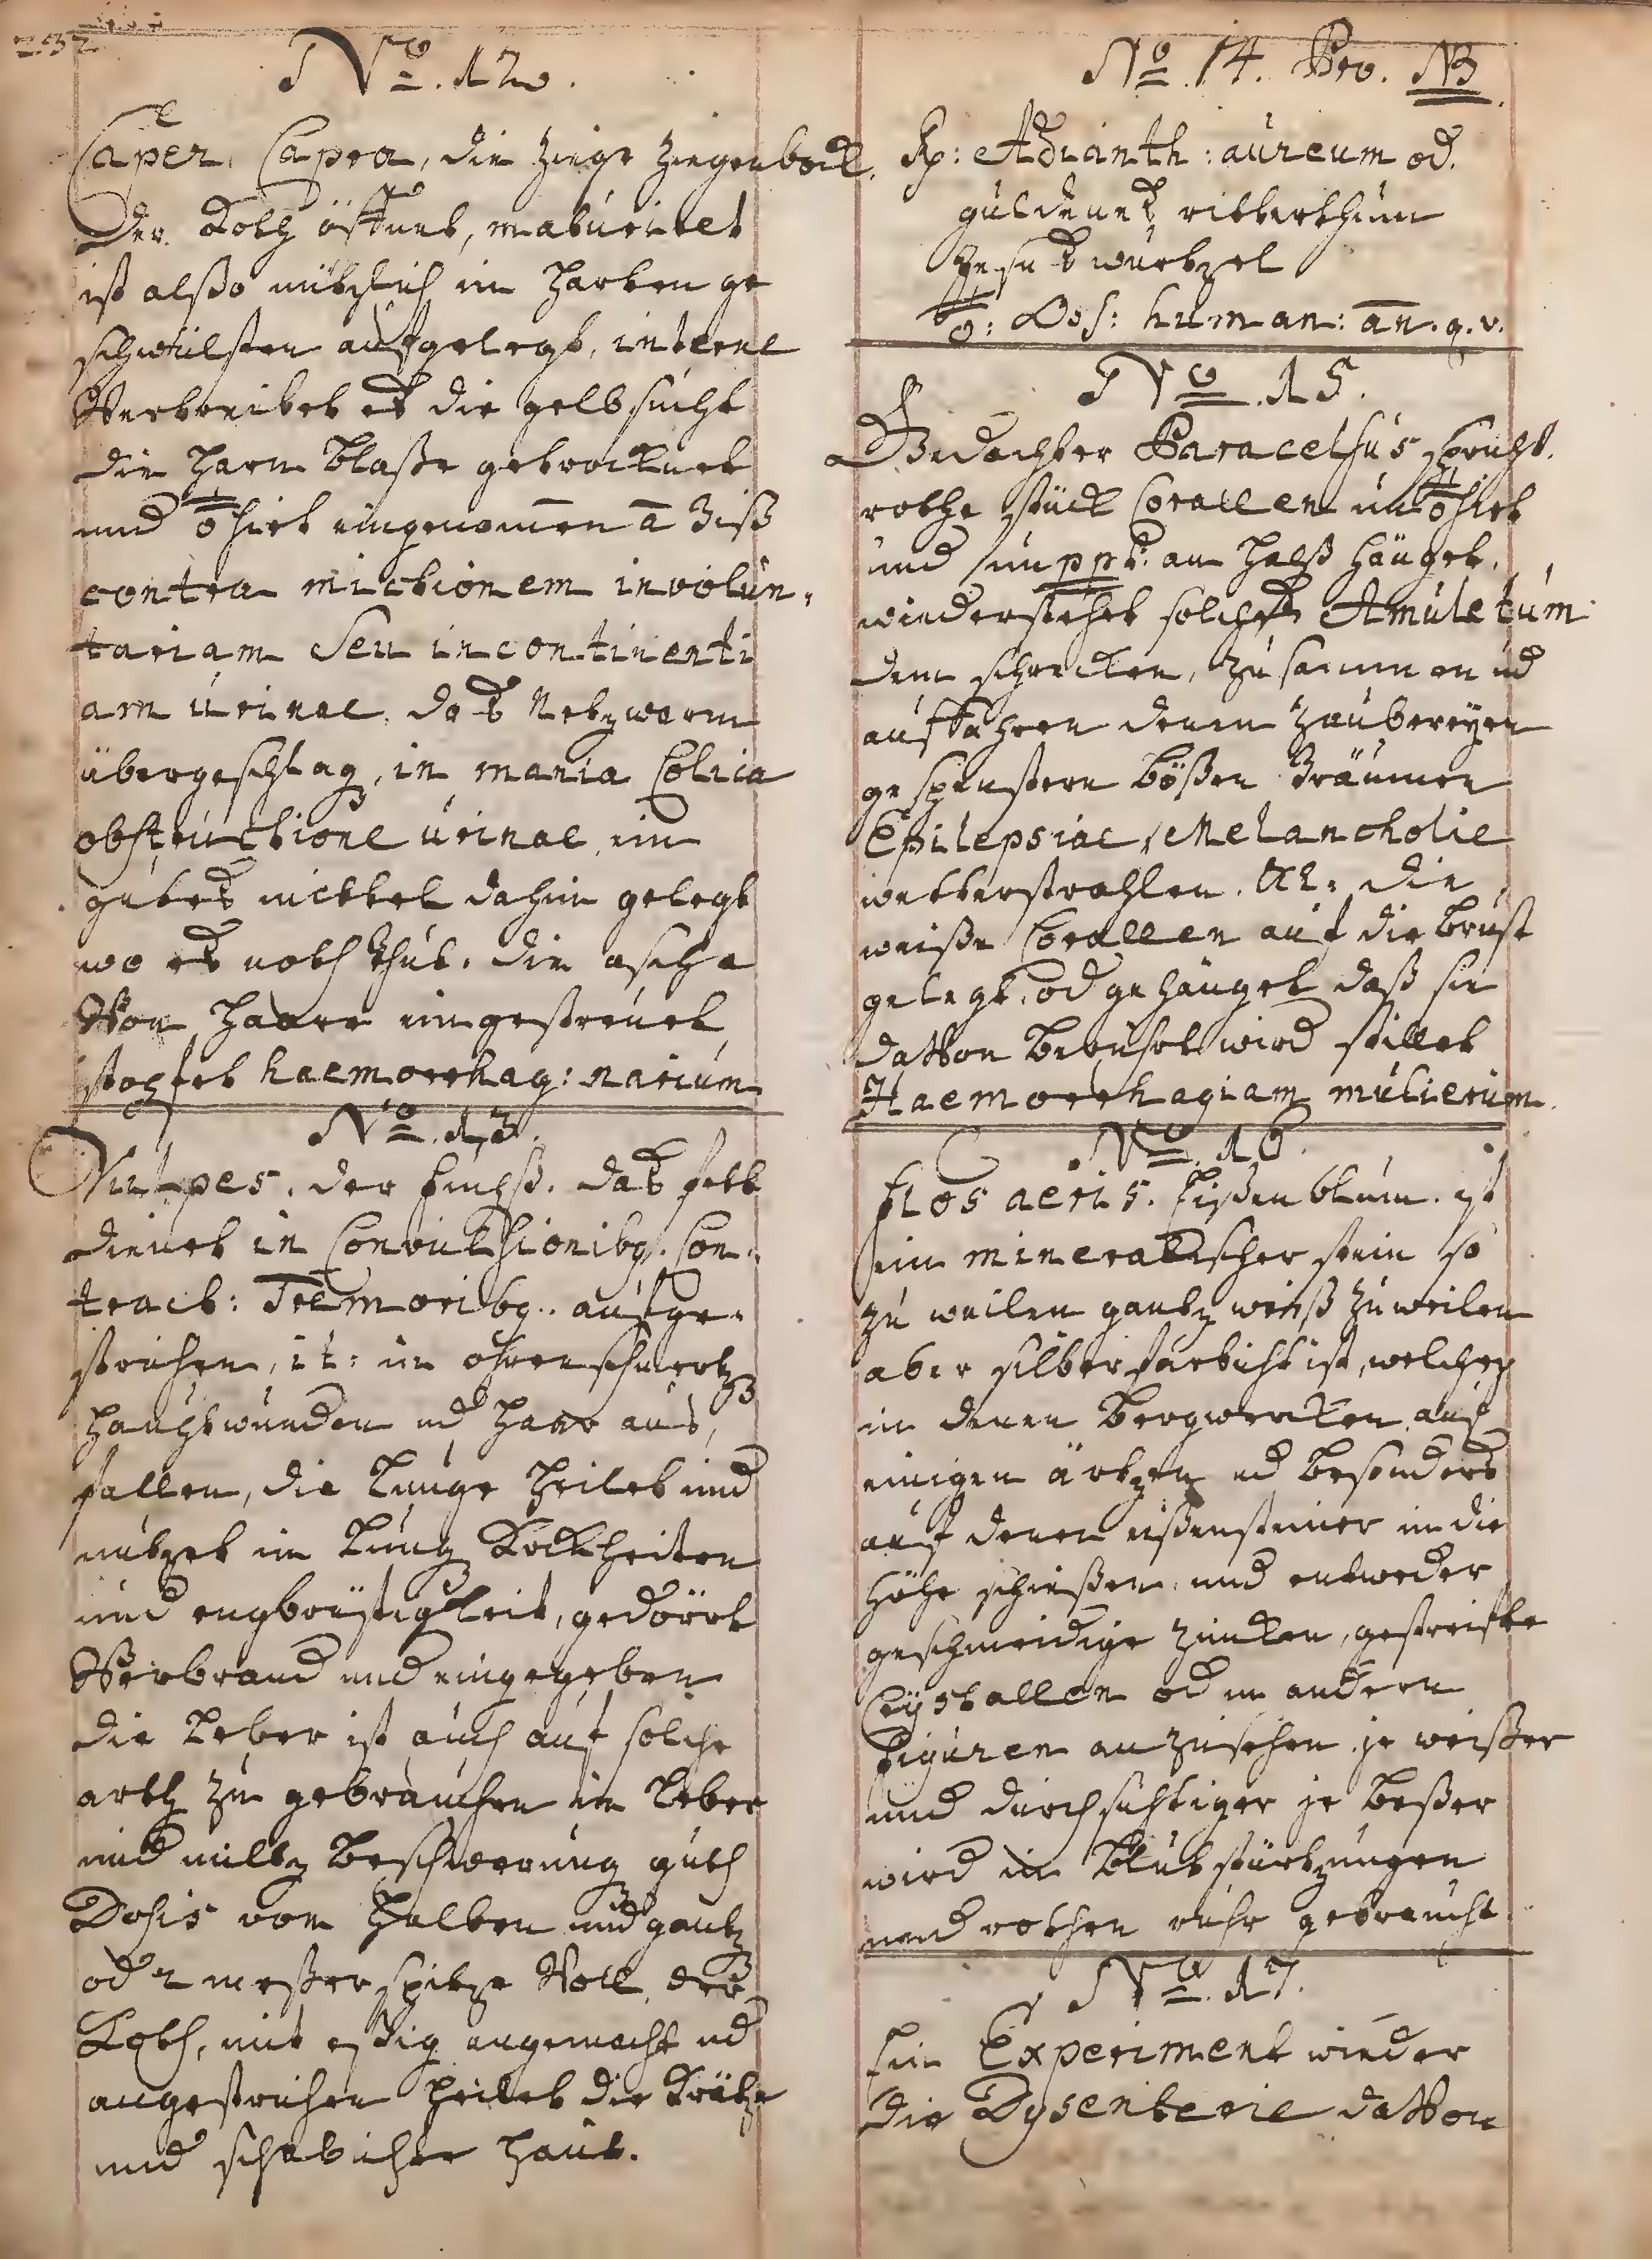 232
No. 12.
Caper, Capra, die Ziege Ziegenbock.
Der Koth öffnet, maturiret
ist alßo nützlich in harten ge
schwülsten aufgelegt, interne
Vertreibet es die gelbsucht
die Harn Blaße getrocknet
und eingenomen a
contra mictionem involun,
tariam Seu incontinenti
am urinae, das Netz warm
übergeschlag, in mania Colica
obstructione urinae, ein
gutes mittel dahin gelegt
wo es noth thut. die asche
Von Haare eingestreuet
stopfet haemorrhag: narium
No. 13.
Vulpes, der fuchß. das fett
dienet in Convulsionibq. Con-
tract: Tremoribq. aufge-
strichen, it: in ohrenschmertz
Hauptwunden ud Haar aus,
fallen, die Lunge heilet und
nützet in Lung Krckheiten
und engbrüstigkeit, gedörrt
Verbrand und eingegeben
die Leber ist auch auf solche
arth zu gebrauchen in Leber
und miltz Beschwerung guth
Dosis von Halben und gantz
od 2 meßerspitze Voll. der
Koth, mit eßig angemacht ud
angestrichen heilet die Krätze
und schäbichte Haut.
No. 14. Pro. NB
Rp: Adianth: aureum od.
güldenes widerthun
wurtzel
Oss: human: an. q. v.
No. 15.
Gedachter Paracelsus spricht.
rothe stück Corallen
und ppt: am Halß hänget,
wiederstehet solches Amuletum
dem schrecken, zusammen ud
auffahren denen Zaubereyen
gespenstern bößen Träumen
Epilepsiae, Melancholie
wetterstrahlen. &c: die
weiße Corallen auf die Brust
gelegt, od gehänget daß sie
daVon Berührt wird stillet
Haemorrhagiam mulierum.
No. 16.
flos aeris. Eißenblum. ist
ein mineralischer stein so
zu weilen gantz weiß zuweilen
aber silberfarbicht ist, welcher
in denen Bergwercken auf
einigen ärtzen ud besonders
auf denen eißensteiner in die
Höhe schießen, und entweder
geschmeidige Zincken, gestreifte
Crystallen od in andern
figuren anzusehen je weißer
und durchsichtiger je beßer
wird in Blutstürtzungen
und rothen ruhr gebraucht
No. 17.
Ein Experiment wieder
die Dysenterie daVon